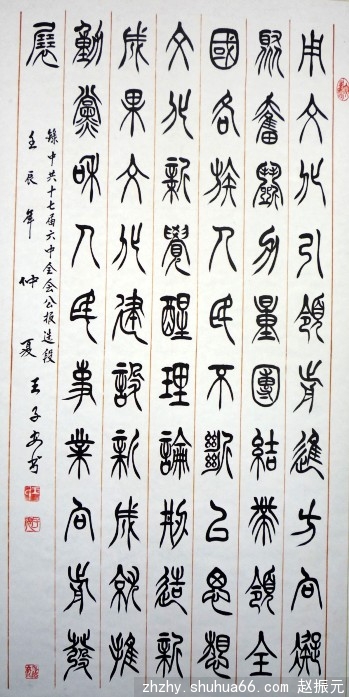 用文化引領前進方向凝
聚奮發力量團結帶領全
國各族人民不斷以思想
文化新覺醒理論創造新
成果文化建設新成就推
動黨和人民事業向前發
展
中共十七届六中全会公报选段
壬辰年仲夏王子书
zhzhy.shuhua66.com 赵振元